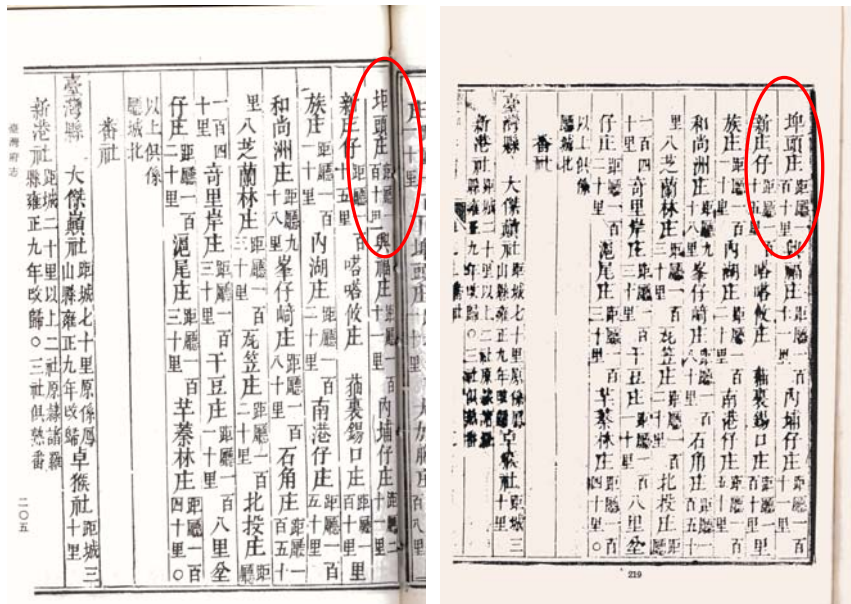 坥頭庄距廳一百十里興福庄距廳一百十一里內埔仔庄距廳一百十一里
新庄仔距廳一百十五里嗒嗒攸庄猫裏錫口庄距廳一百十里
族庄距廳一百一十里內湖庄距廳一百二十里南港仔庄距廳一百五十里
和尚洲庄距廳九十八里峯仔崎庄距廳一百八十里石角庄距廳一百百五十
里八芝蘭林庄距廳一百三十里瓦笠庄距廳一百二十里北投庄距廳
一百四十里奇里岸庄距廳一百三十里干豆庄距廳一百一十里八里坌
仔庄距廳一百二十里滬尾庄距廳一百三十里芉蓁林庄距廳一百四十里○
以上俱係廳城北
番社
臺灣縣 大傑巔社距城七十里原係鳳山縣雍正九年改歸卓猴社距城三十里
新港社距城二十里以上二社原隸諸羅縣雍正九年改歸○三社俱熟番
臺灣府志
二〇五
埤頭庄距廳一百十里興福庄距廳一百十一里內埔仔庄距廳一百十一里
新庄仔距廳一百十五里嗒嗒攸庄猫裏錫口庄距廳一百十里
族庄距廳一百一十里內湖庄距廳一百二十里南港仔庄距廳一百五十里
和尚洲庄距廳九十八里峯仔崎庄距廳一百八十里石角庄距廳一百百五十
里八芝蘭林庄距廳一百三十里瓦笠庄距廳一百二十里北投庄距廳
一百四十里奇里岸庄距廳一百三十里干豆庄距廳一百一十里八里坌
仔庄距廳一百二十里滬尾庄距廳一百三十里芉蓁林庄距廳一百四十里○
以上俱係廳城北
番社
臺灣縣 大傑巔社距城七十里原係鳳山縣雍正九年改歸卓猴社距城三十里
新港社距城二十里以上二社原隸諸羅縣雍正九年改歸○三社俱熟番
219